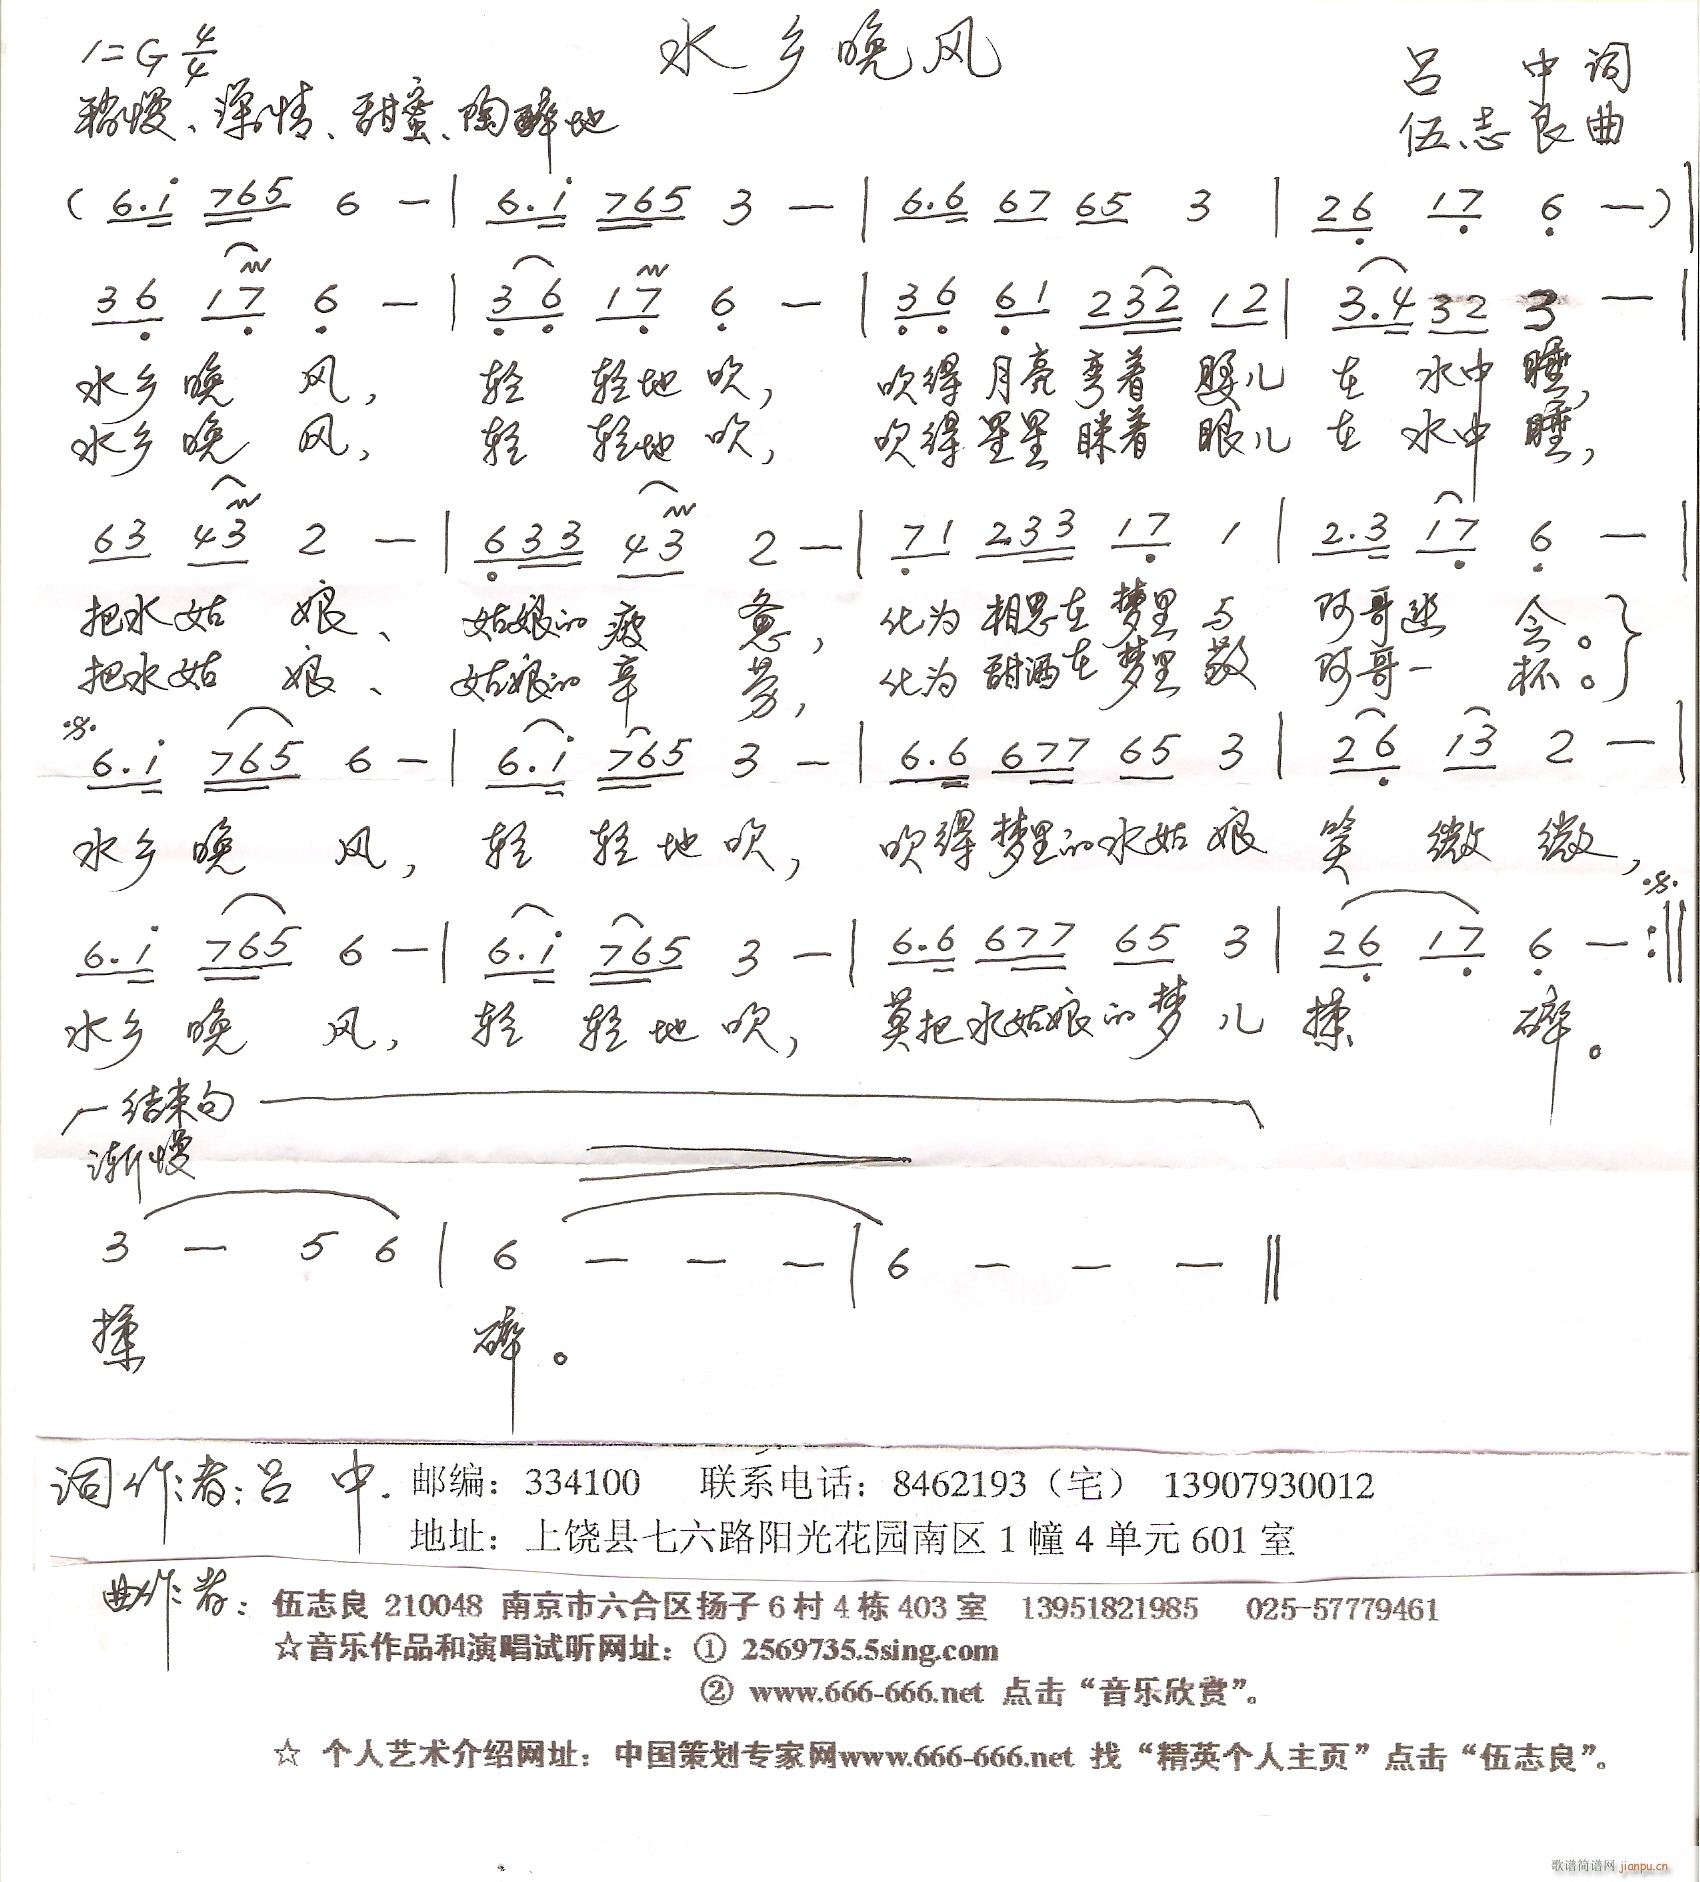 水乡晚风
1=G 4/4
吕 中 词
稍慢、深情、甜蜜、陶醉地
伍志良 曲
( 6.i 765 6 - | 6.i 765 3 - | 6.6 67 65 3 | 26 17 6 - ) |
36 17 6 - | 36 17 6 - | 36 61 232 12 | 3.4 32 3 - |
水乡晚 风, 轻 轻地吹, 吹得月亮弯着 腰儿 在 水中睡,
水乡晚 风, 轻 轻地吹, 吹得星星眯着 眼儿 在 水中睡,
63 43 2 - | 633 43 2 - | 71 233 17 1 | 2.3 17 6 - |
把水姑 娘、 姑娘的疲 惫, 化为相思在梦里与 阿哥幽 会。
把水姑 娘、 姑娘的辛 劳, 化为甜酒在梦里敬 阿哥一 杯。
6.i 765 6 - | 6.i 765 3 - | 6.6 677 65 3 | 26 13 2 - |
水乡晚 风, 轻 轻地吹, 吹得梦里的水姑娘 笑 微 微,
6.i 765 6 - | 6.i 765 3 - | 6.6 677 65 3 | 26 17 6 - :||
水乡晚 风, 轻 轻地吹, 莫把水姑娘的梦儿 揉 碎。
结束句
渐慢
3 - 5 6 | 6 - - - | 6 - - - ||
揉 碎。
词作者:吕 中. 邮编：334100 联系电话：8462193（宅） 13907930012
地址：上饶县七六路阳光花园南区1幢4单元601室
曲作者: 伍志良 210048 南京市六合区扬子6村4栋403室 13951821985 025-57779461
☆音乐作品和演唱试听网址：① 2569735.5sing.com
② www.666-666.net 点击“音乐欣赏”。
☆ 个人艺术介绍网址：中国策划专家网www.666-666.net 找“精英个人主页”点击“伍志良”。
歌谱简谱网 jianpu.cn